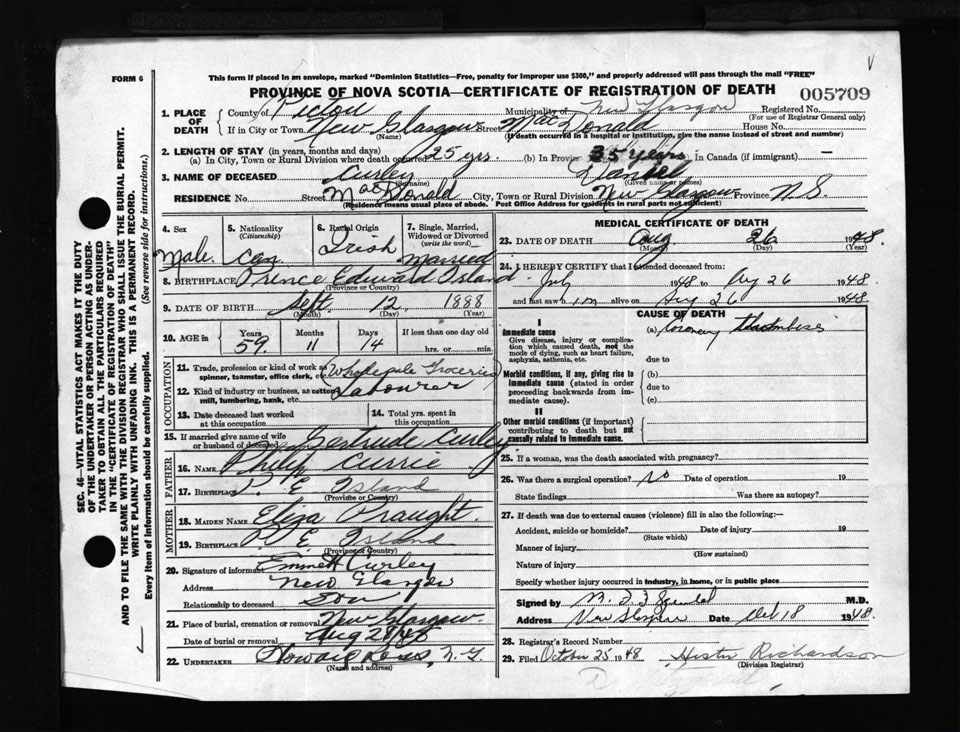 FORM 6
This form if placed in an envelope, marked "Dominion Statistics—Free, penalty for improper use $300," and properly addressed will pass through the mail "FREE"
PROVINCE OF NOVA SCOTIA—CERTIFICATE OF REGISTRATION OF DEATH
005709
1. PLACE OF DEATH
County of Pictou Municipality of New Glasgow Registered No.
(For use of Registrar General only)
If in City or Town New Glasgow Street MacDonald House No.
(Name) (If death occurred in a hospital or institution, give the name instead of street and number)
2. LENGTH OF STAY (in years, months and days)
(a) In City, Town or Rural Division where death occurred 25 yrs. (b) In Province 35 years in Canada (if immigrant) —
3. NAME OF DECEASED Curley Daniel
(Surname) (Given name or names)
RESIDENCE No. Street MacDonald City, Town or Rural Division New Glasgow Province N.S.
(Residence means usual place of abode. Post Office Address for residents in rural parts not sufficient)
4. Sex
Male.
5. Nationality
(Citizenship)
Can.
6. Racial Origin
Irish
7. Single, Married, Widowed or Divorced
(write the word—)
Married
8. BIRTHPLACE Prince Edward Island
(Province or Country)
9. DATE OF BIRTH Sept. 12 1888
(Month) (Day) (Year)
10. AGE in
Years Months Days If less than one day old
59. 11 14 hrs. or min.
OCCUPATION
11. Trade, profession or kind of work as spinner, teamster, office clerk, etc. Wholesale Groceries
12. Kind of industry or business, as cotton mill, lumbering, bank, etc. Labourer
13. Date deceased last worked at this occupation
14. Total yrs. spent in this occupation
15. If married give name of wife or husband of deceased Gertrude Curley
FATHER
16. NAME Philip Currie
17. BIRTHPLACE P. E Island
(Province or Country)
MOTHER
18. MAIDEN NAME Eliza Praught.
19. BIRTHPLACE P. E. Island
(Province or Country)
20. Signature of informant Emmett Curley
Address New Glasgow
Relationship to deceased Son
21. Place of burial, cremation or removal New Glasgow
Date of burial or removal Aug 28/48
22. UNDERTAKER Howard Ross, N. G.
(Name and address)
MEDICAL CERTIFICATE OF DEATH
23. DATE OF DEATH Aug 26 1948.
(Month) (Day) (Year)
24. I HEREBY CERTIFY that I attended deceased from:
July 1948 to Aug 26 1948
and last saw him alive on Aug 26 1948.
CAUSE OF DEATH
I
Immediate cause
Give disease, injury or complication which caused death, not the mode of dying, such as heart failure, asphyxia, asthenia, etc.
(a) Coronary thrombosis
due to
Morbid conditions, if any, giving rise to immediate cause (stated in order proceeding backwards from immediate cause).
(b)
due to
(c)
II
Other morbid conditions (if important) contributing to death but not causally related to immediate cause.
25. If a woman, was the death associated with pregnancy?
26. Was there a surgical operation? no Date of operation 19
State findings Was there an autopsy?
27. If death was due to external causes (violence) fill in also the following:—
Accident, suicide or homicide? Date of injury 19
(State which)
Manner of injury
(How sustained)
Nature of injury
Specify whether injury occurred in industry, in home, or in public place
Signed by M.D.
Address New Glasgow Date Oct 18 1948.
28. Registrar's Record Number
29. Filed October 25 1948 Hester Richardson
(Division Registrar)
SEC. 46—VITAL STATISTICS ACT MAKES IT THE DUTY
OF THE UNDERTAKER OR PERSON ACTING AS UNDERTAKER TO OBTAIN ALL THE PARTICULARS REQUIRED
IN THE "CERTIFICATE OF REGISTRATION OF DEATH"
AND TO FILE THE SAME WITH THE DIVISION REGISTRAR WHO SHALL ISSUE THE BURIAL PERMIT.
WRITE PLAINLY WITH UNFADING INK. THIS IS A PERMANENT RECORD.
Every item of information should be carefully supplied. (See reverse side for instructions.)